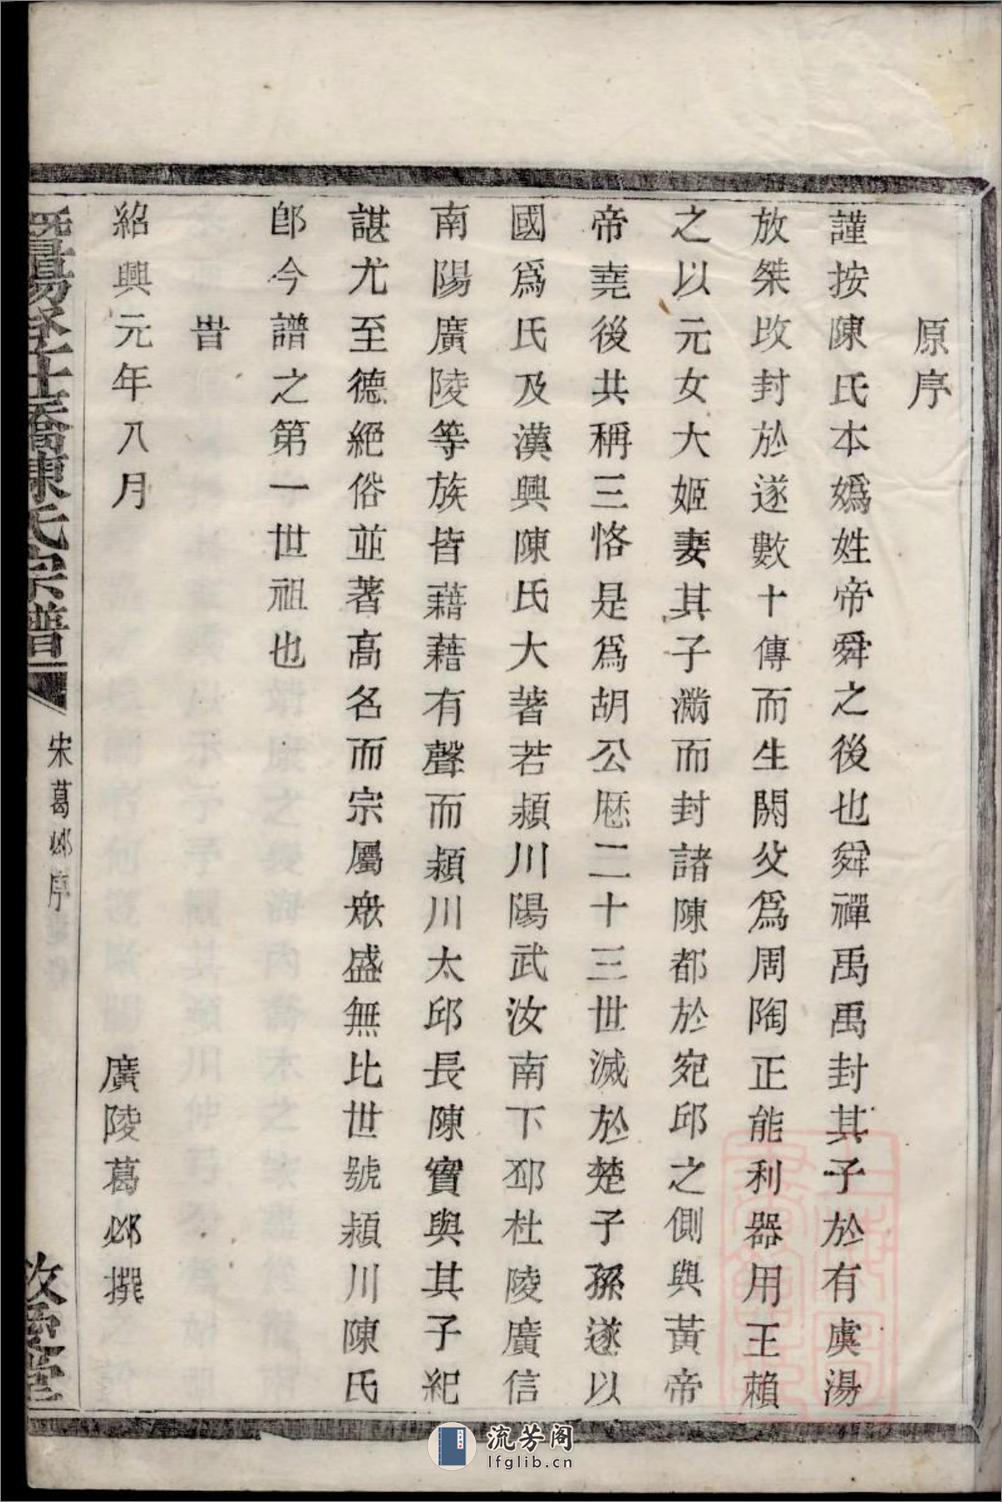 原序
謹按陳氏本嬀姓帝舜之後也舜禪禹禹封其子於有虞湯
放桀攺封於遂數十傳而生閼父爲周陶正能利器用王賴
之以元女大姬妻其子滿而封諸陳都於宛邱之側與黃帝
帝堯後共稱三恪是爲胡公厯二十三世滅於楚子孫遂以
國爲氏及漢興陳氏大著若潁川陽武汝南下邳杜陵廣信
南陽廣陵等族皆藉藉有聲而潁川太邱長陳寶與其子紀
諶尤至德絕俗並著高名而宗屬衆盛無比世號潁川陳氏
卽今譜之第一世祖也
旹
紹興元年八月
廣陵葛邲撰
暨陽學士橋陳氏宗譜
宋葛邲序
流芳阁
lfglib.cn